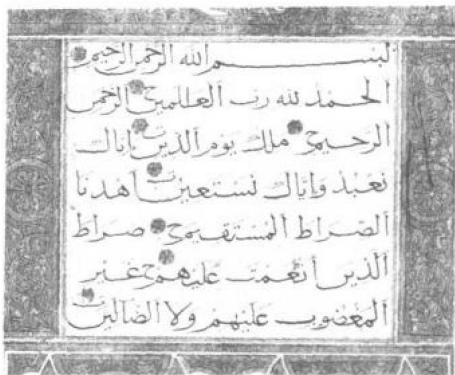 بسم الله الرحمن الرحيم
الحمد لله رب العلمين الرحمن
الرحيم ملك يوم الدين اياك
نعبد واياك نستعين اهدنا
الصراط المستقيم صراط
الذين أنعمت عليهم غير
المغضوب عليهم ولا الضالين